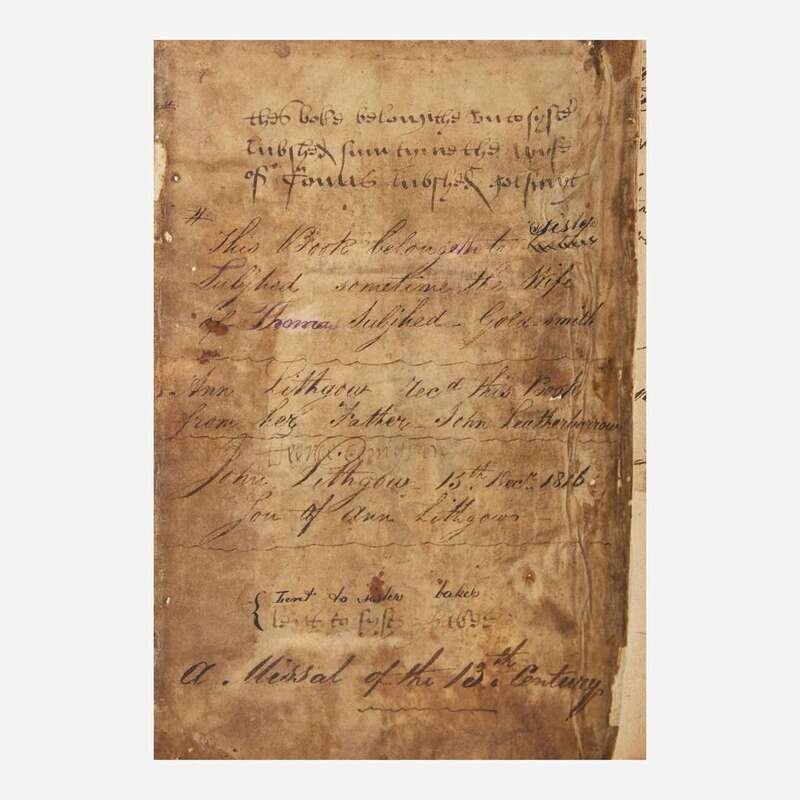 thes boke belongithe unto syste
lubshed sumtyme the wyfe
of Tomas lubshed golsmyt
#
This Book belongeth to Cisly
Suljhed sometime the Wife
of Thomas Suljhed - Goldsmith
Ann Lithgow Rec.d this Book
from her Father - John Leatherbarrow
John Lithgow - 15th Decr. 1816
Son of Ann Lithgow -
{ Lent to sister baker
lent to syste
A Missal of the 13th Century